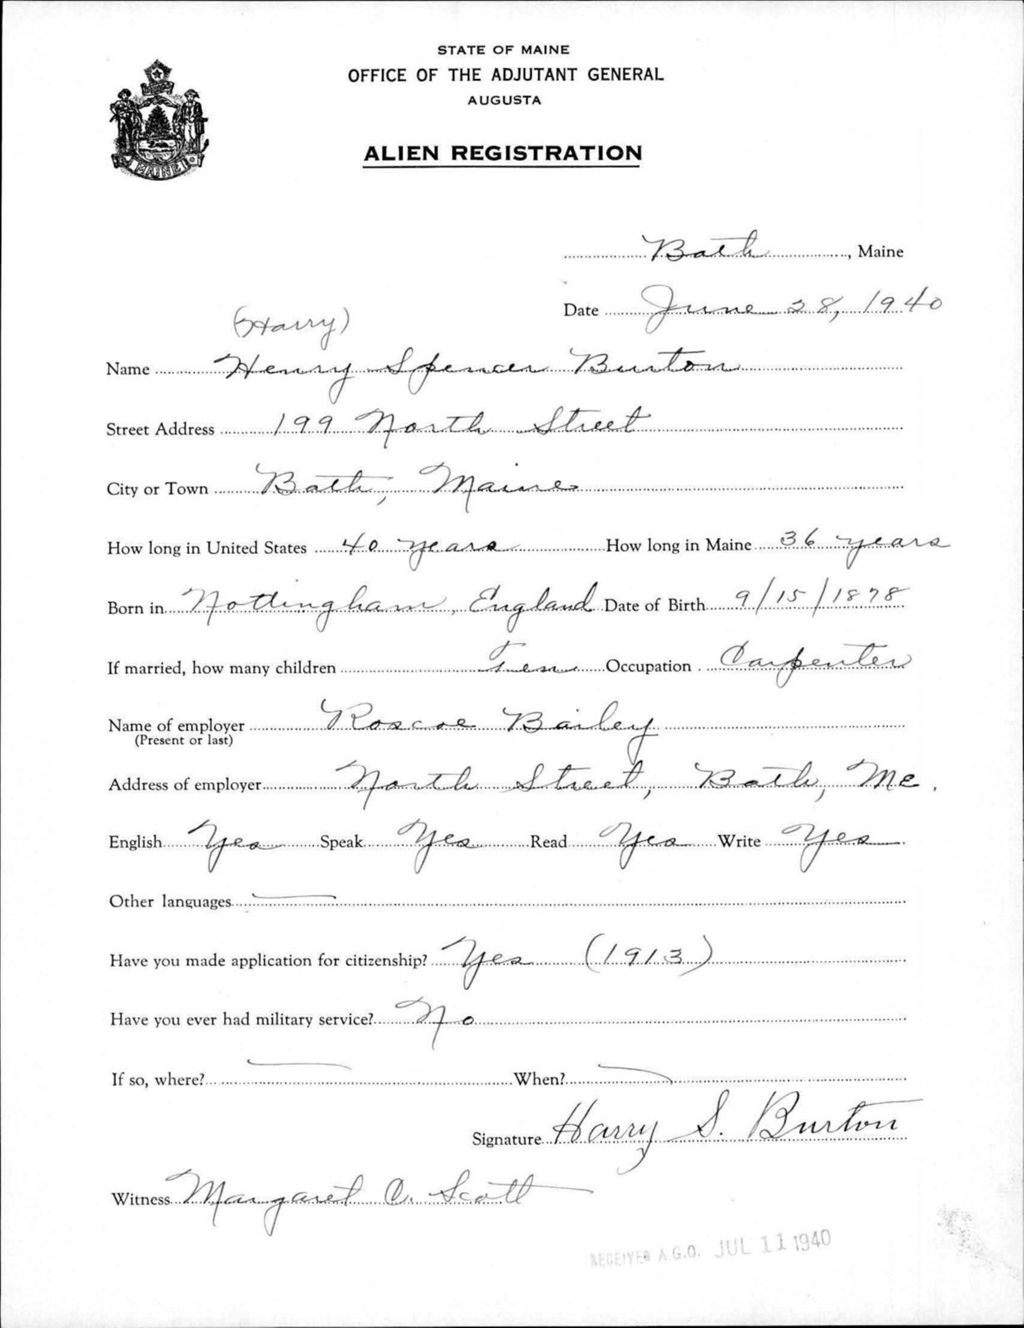 STATE OF MAINE
OFFICE OF THE ADJUTANT GENERAL
AUGUSTA
ALIEN REGISTRATION
MAINE
Bath, Maine
Date June 28, 1940
(Harry)
Name Henry Spencer Burton
Street Address 199 North Street
City or Town Bath, Maine
How long in United States 40 years How long in Maine 36 years
Born in Nottingham, England Date of Birth 9/15/1878
If married, how many children Ten Occupation Carpenter
Name of employer Roscoe Bailey
(Present or last)
Address of employer North Street, Bath, Me.
English Yes Speak Yes Read Yes Write Yes
Other languages
Have you made application for citizenship? Yes (1913)
Have you ever had military service? No
If so, where? When?
Signature Harry S. Burton
Witness Margaret C. Scott
RECEIVED A.G.O. JUL 11 1940